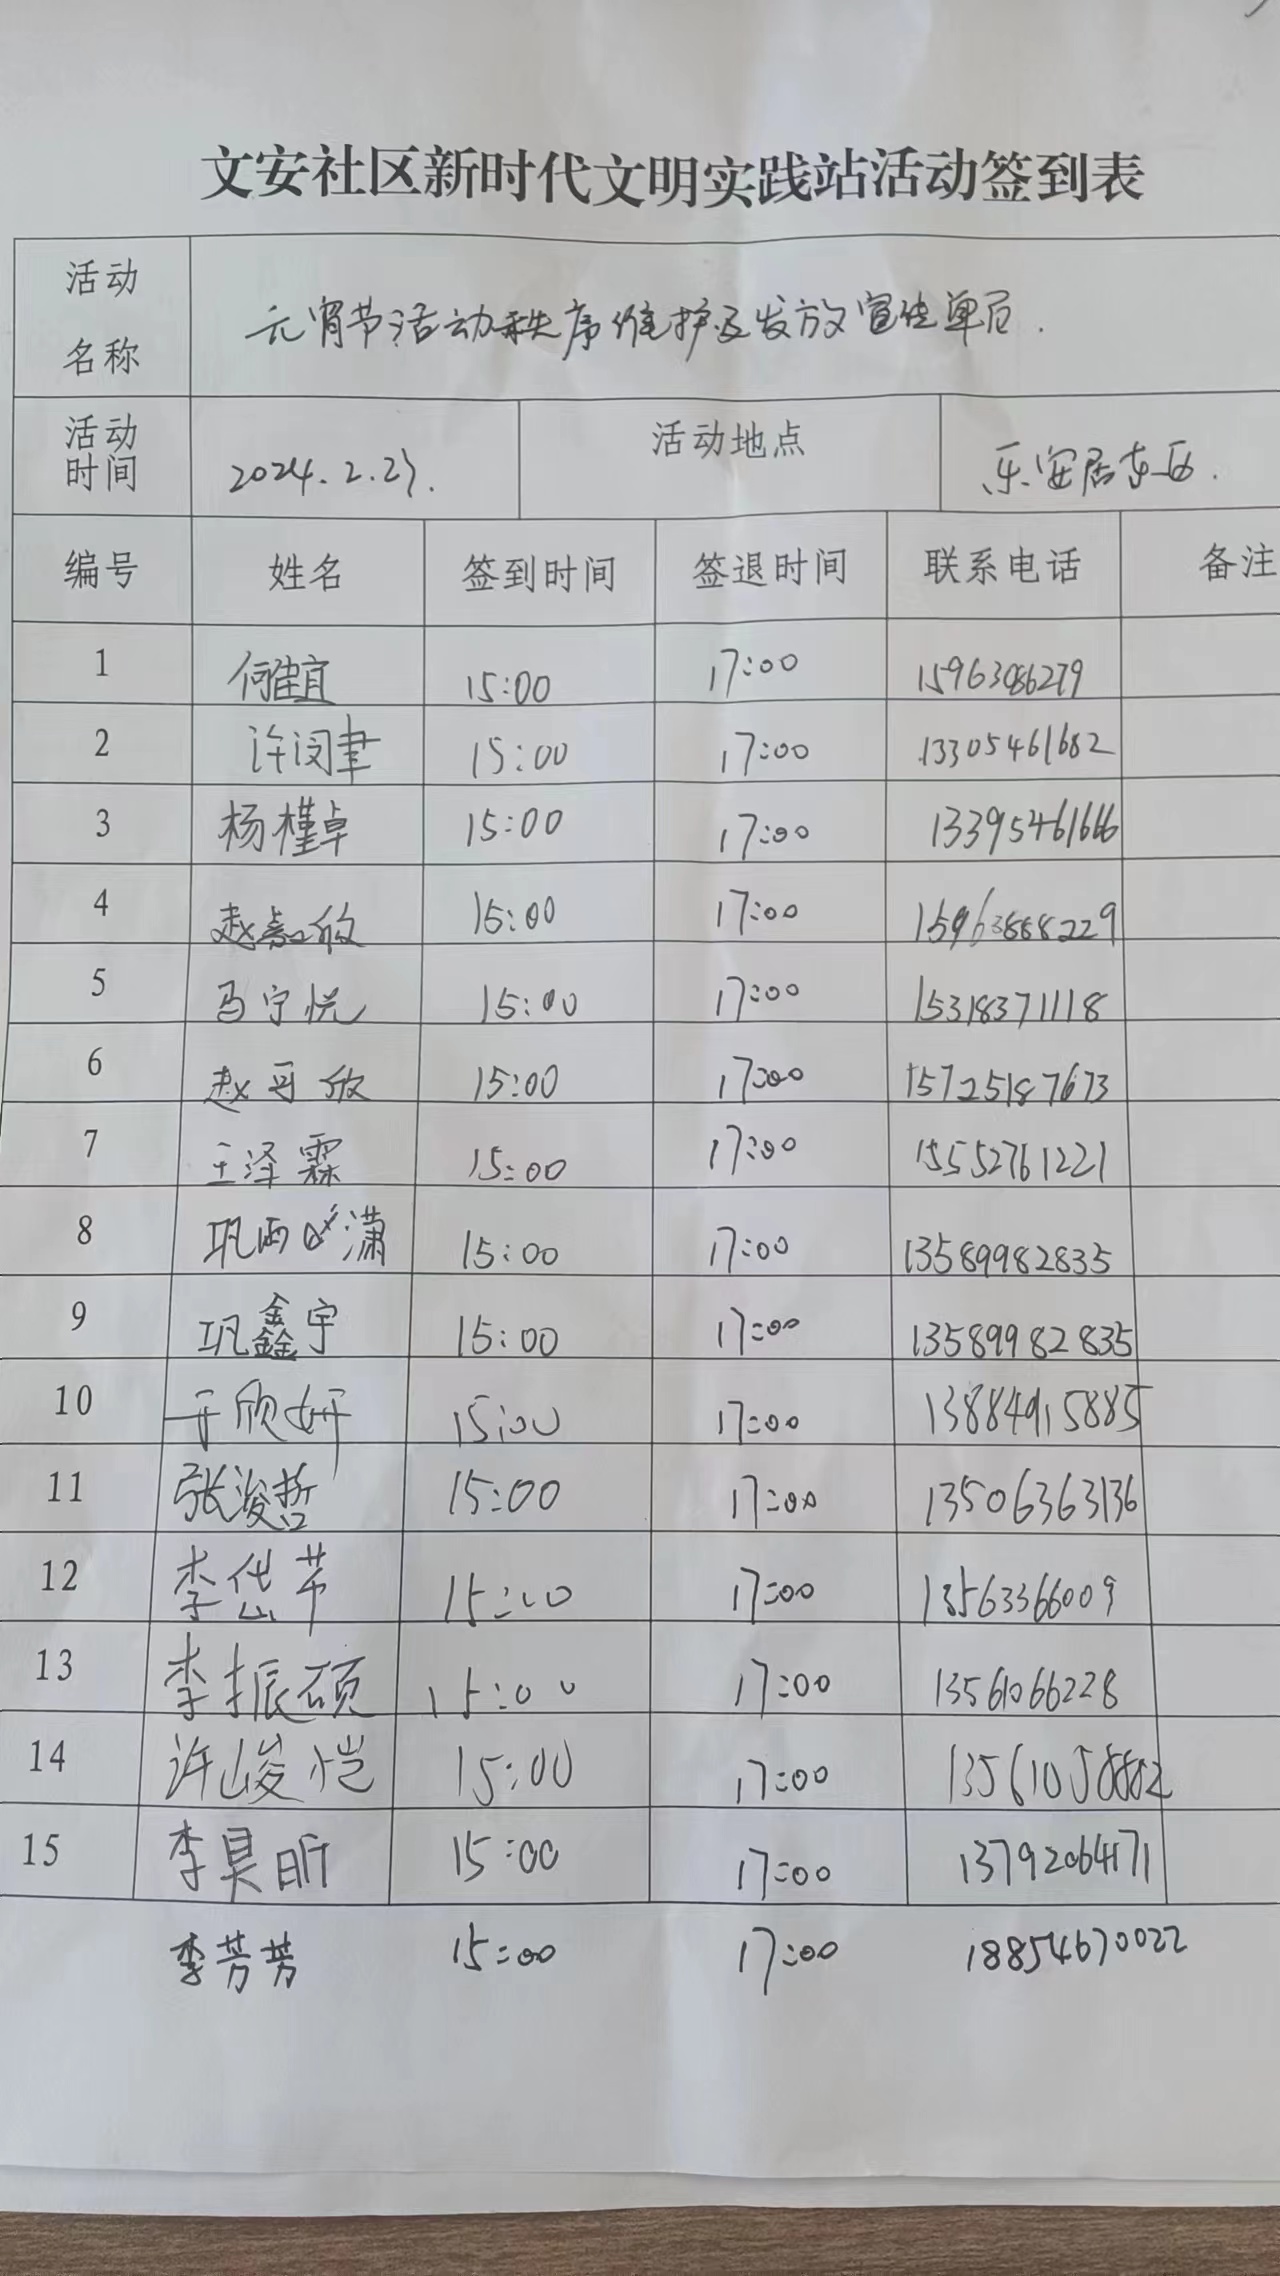 文安社区新时代文明实践站活动签到表
活动名称 元宵节活动秩序维护及发放宣传单页.
活动时间 2024.2.23. 活动地点 乐安居东区.
编号 姓名 签到时间 签退时间 联系电话 备注
1 何佳宜 15:00 17:00 15963086279
2 许闵聿 15:00 17:00 13305461682
3 杨槿卓 15:00 17:00 13395461666
4 赵嘉欣 15:00 17:00 15963888229
5 马宁悦 15:00 17:00 15318371118
6 赵可欣 15:00 17:00 15725187673
7 王泽霖 15:00 17:00 15552761221
8 巩雨潇 15:00 17:00 13589982835
9 巩鑫宇 15:00 17:00 13589982835
10 于欣妍 15:00 17:00 13884915885
11 张浚哲 15:00 17:00 13506363136
12 李岱芾 15:00 17:00 13563366009
13 李振硕 15:00 17:00 13561066228
14 许峻恺 15:00 17:00 13561058882
15 李昊昕 15:00 17:00 13792064171
李芳芳 15:00 17:00 18854670022